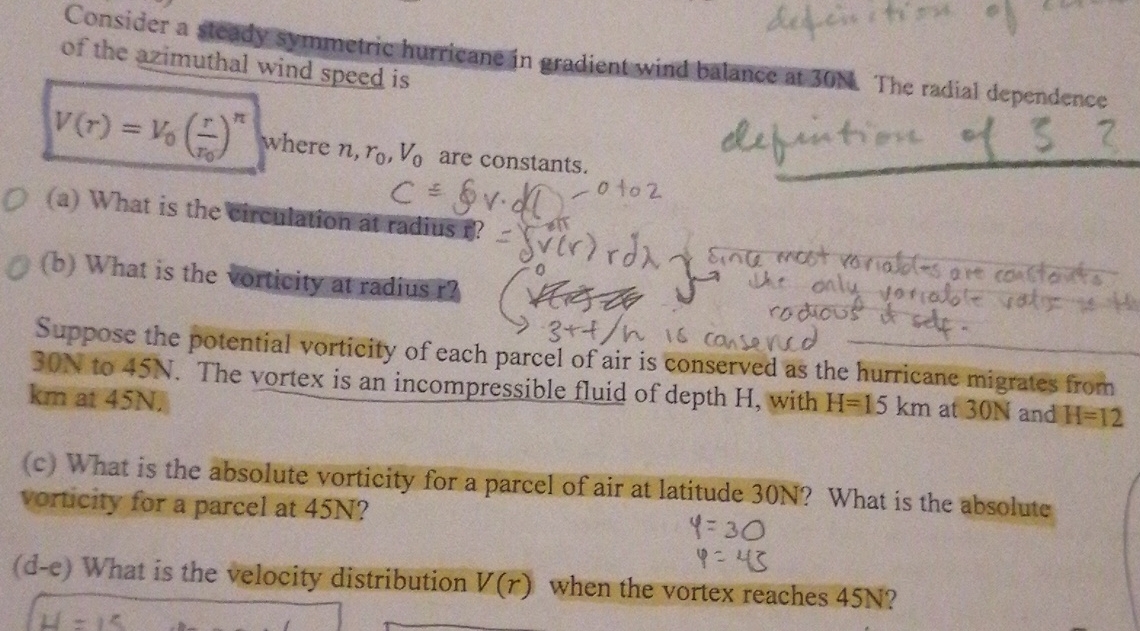 definition of
Consider a steady symmetric hurricane in gradient wind balance at 30N. The radial dependence
of the azimuthal wind speed is
V(r) = V₀ (r/r₀)ⁿ where n, r₀, V₀ are constants.
defintion of ζ ?
C ≡ ∮ v·dl - 0 to 2
(a) What is the circulation at radius r?
= ∫ v(r) r dλ
since most variables are constants
the only variable value is
radious it self.
(b) What is the vorticity at radius r?
ζ+f/h is conserved
Suppose the potential vorticity of each parcel of air is conserved as the hurricane migrates from
30N to 45N. The vortex is an incompressible fluid of depth H, with H=15 km at 30N and H=12
km at 45N.
(c) What is the absolute vorticity for a parcel of air at latitude 30N? What is the absolute
vorticity for a parcel at 45N?
φ=30
φ=45
(d-e) What is the velocity distribution V(r) when the vortex reaches 45N?
H=15